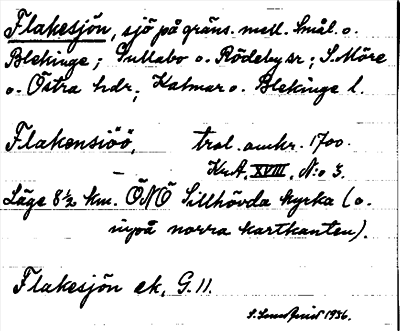 Flakesjön, sjö på gräns. mell. Smål. o.
Blekinge; Gullabo o. Rödeby sr; S. Möre
o. Östra hdr; Kalmar o. Blekinge l.
Flakensiöö, trol. omkr. 1700.
KrA, XVIII, N:o 3.
Läge 8½ km. ÖNÖ Sillhövda kyrka (o.
inpå norra kartkanten).
Flakesjön ek. G. 11.
1936.